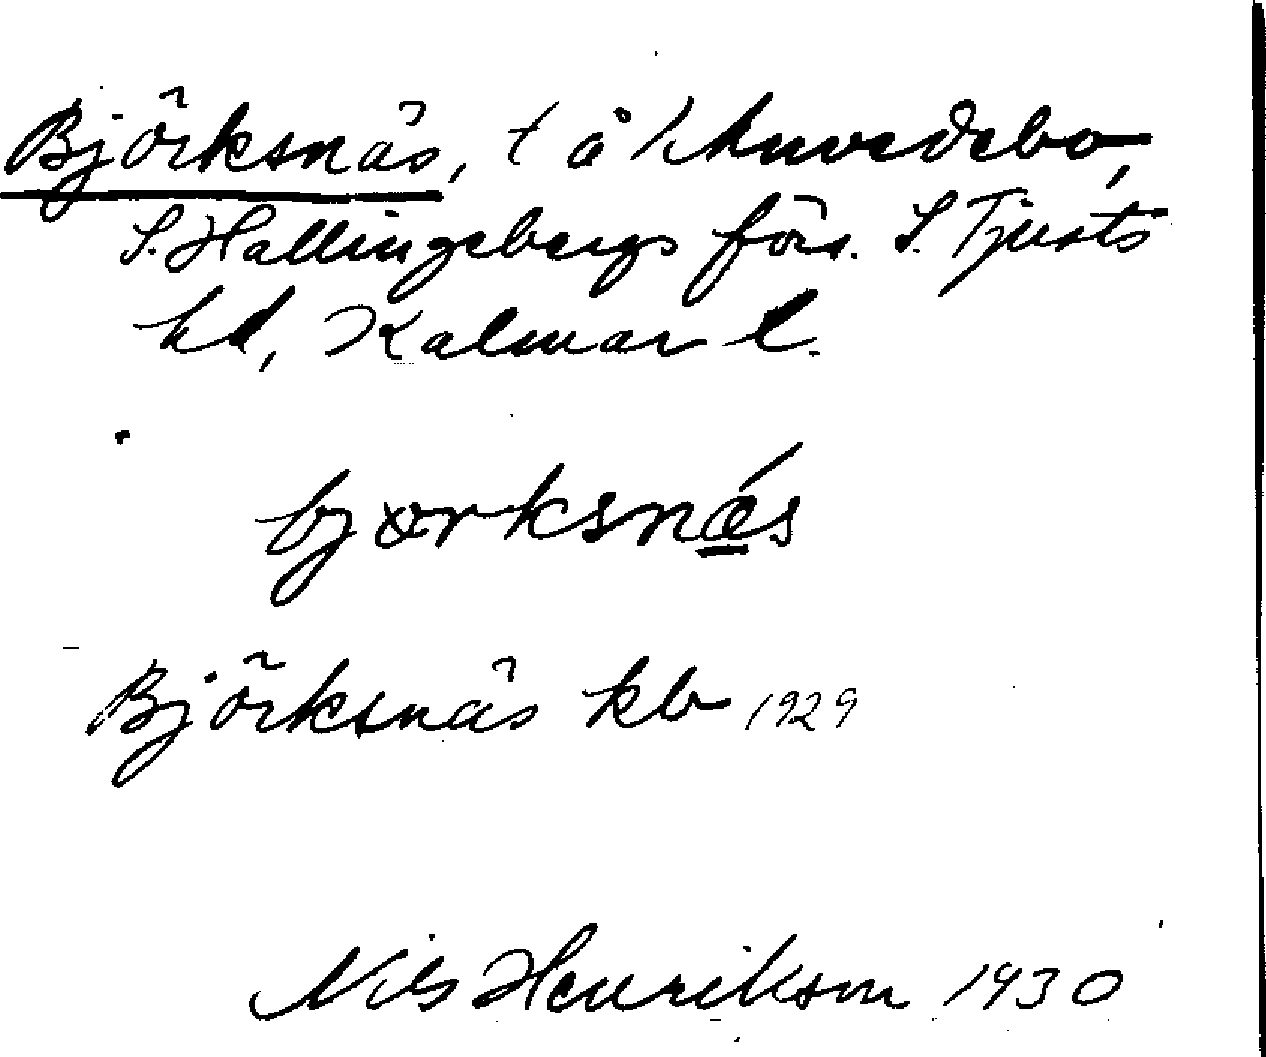 Björksnäs, t å
S. Hallingebergs förs. S. Tjusts
hd, Kalmar l.
björksnǽ̲s
Björksnäs kb 1929
Nils Henrikson 1930